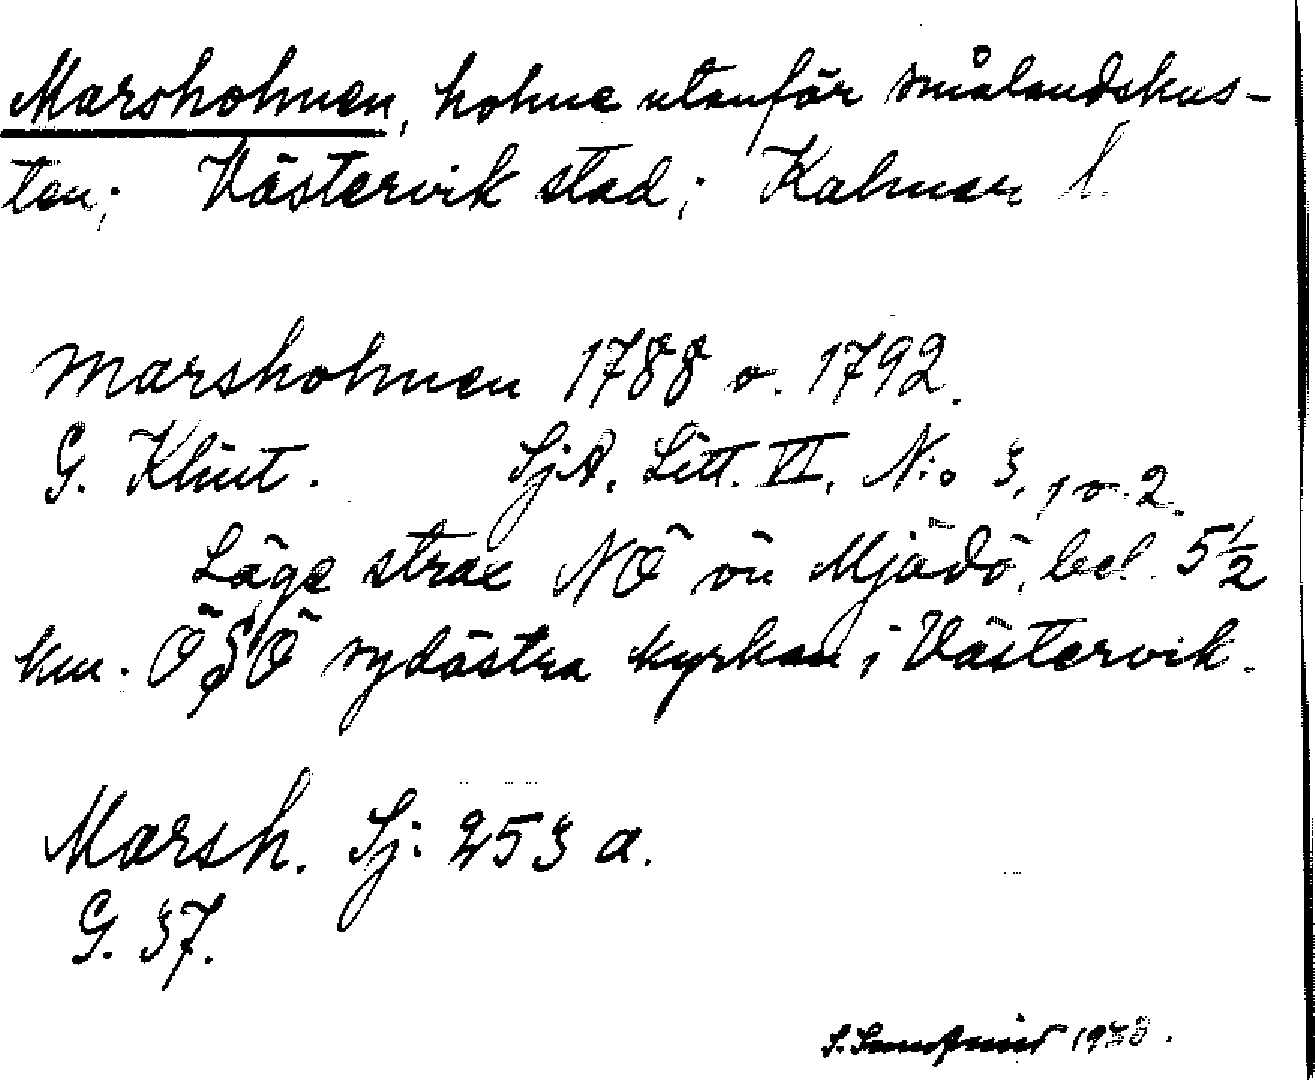 Marsholmen, holme utanför smålandskus-
ten; Västervik stad; Kalmar l.
Marsholmen 1788 o. 1792.
G. Klint. SjA, Litt. VI, N:o 3, 1 o. 2.
Läge strax NÖ ön Mjödö, bel. 5½
km. ÖSÖ sydöstra kyrkan i Västervik.
Marsh. Sj: 253 a.
G. 37.